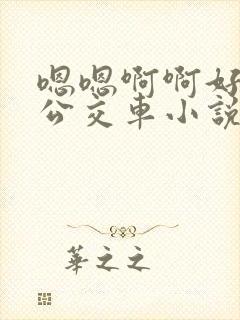 嗯嗯啊啊好
公交車小說
華之之